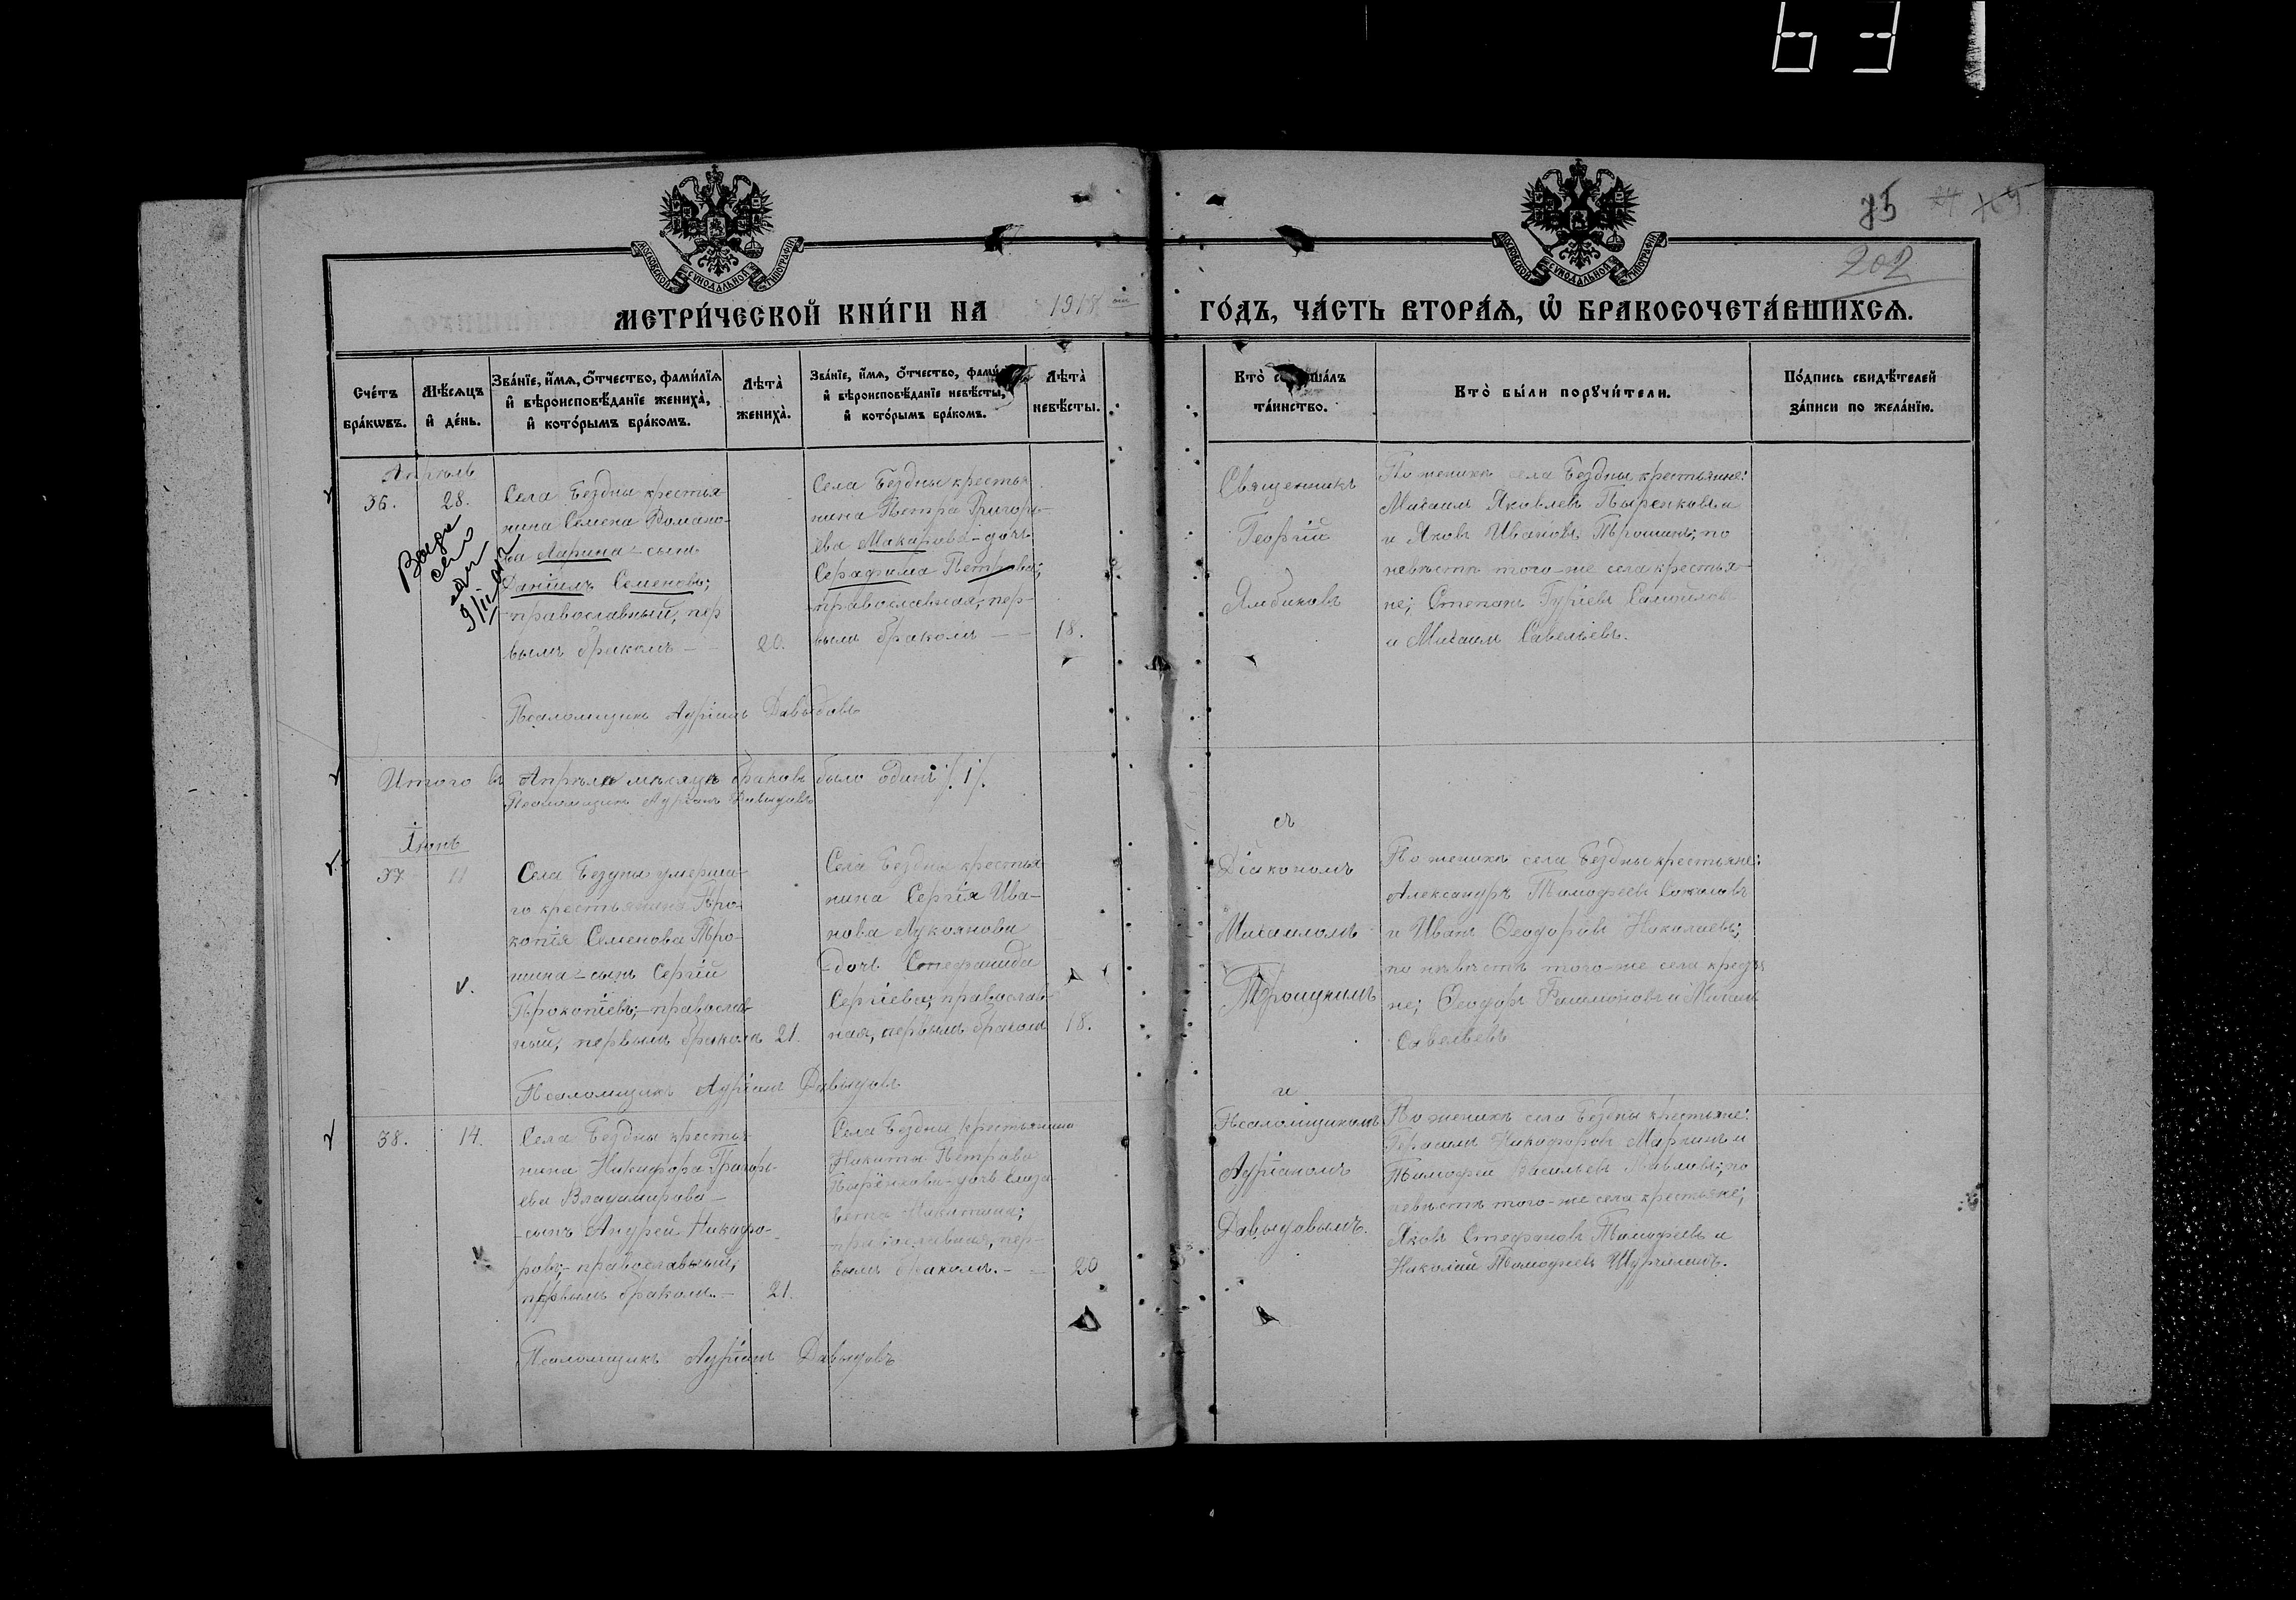 63
75 24 169
202
МОСКОВСКОЙ СУНОДАЛЬНОЙ ТИПОГРАФІИ
МОСКОВСКОЙ СУНОДАЛЬНОЙ ТИПОГРАФІИ
МЕТРИ́ЧЕСКОЙ КНИ́ГИ НА 1918 ГО́ДЪ, ЧА́СТЬ ВТОРА́Я, Ѡ҆ БРАКОСОЧЕТА́ВШИХСЯ.
Сче́тъ
бра́кѡвъ.
Мѣ́сяцъ
и҆ де́нь.
Зва́нїе, и҆́мя, ѻ҆́тчество, фами́лїя
и҆ вѣроисповѣ́данїе жениха̀,
и҆ кото́рымъ бра́комъ.
Лѣта̀
жениха̀.
Зва́нїе, и҆́мя, ѻ҆́тчество,
и҆ вѣроисповѣ́данїе невѣ́сты,
и҆ кото́рымъ бра́комъ.
Лѣта̀
невѣ́сты.
Кто̀
та́инство.
Кто̀ бы́ли порꙋчи́тели.
По́дпись свидѣ́телей
за́писи по жела́нїю.
Апрѣль
36.
28.
Села Бездны крестья
нина Семена Романо-
ва Ларина - сынъ
Даніилъ Семеновъ;
православный, пер
вымъ бракомъ - -
20.
Села Бездны крестья
нина Петра Григорь-
ева Макарова - дочь
Серафима Петрова;
православная, пер-
вымъ бракомъ - -
18.
Священникъ
Георгій
Ямбиковъ
По женихѣ села Бездны крестьяне:
Михаилъ Яковлевъ Пыренковъ и
и Яковъ Ивановъ Прошинъ; по
невѣстѣ того-же села крестья-
не; Степанъ Гуріевъ
и Михаилъ Савельевъ.
Псаломщикъ Адріанъ Давыдовъ
Итого въ Апрѣлѣ мѣсяцѣ браковъ было одинъ /. 1 /.
Псаломщикъ Адріанъ Давыдовъ
Іюнь
37
11
Села Бездны умерша-
го крестьянина Про-
копія Семенова Про-
шина - сынъ Сергій
Прокопіевъ; православ-
ный, первымъ бракомъ
21.
Села Бездны крестья
нина Сергія Ива-
нова Лукоянова
- дочь Стефанида
Сергіева; православ-
ная, первымъ бракомъ
18.
съ
Діакономъ
Михаиломъ
Троицкимъ
По женихѣ села Бездны крестьяне:
Александръ Тимофеевъ Соколовъ
и Иванъ Ѳеодоровъ Николаевъ;
по невѣстѣ того-же села крестья
не; Ѳеодоръ и Михаилъ
Савельевъ
Псаломщикъ Адріанъ Давыдовъ
38.
14.
Села Бездны крестья-
нина Никифора Григорь-
ева Владимирова -
- сынъ Андрей Никифо-
ровъ; - православный,
первымъ бракомъ. -
21.
Села Бездны крестьянина
Никиты Петрова
Пыренкова - дочь Елиза
вета Никитина;
православная, пер-
вымъ бракомъ. - -
20
и
Псаломщикомъ
Адріаномъ
Давыдовымъ.
По женихѣ села Бездны крестьяне:
Никифоровъ Маркинъ и
Тимофей Васильевъ Павловъ; по
невѣстѣ того-же села крестьяне;
Яковъ Стефановъ Тимофеевъ и
Николай Тимофеевъ
Псаломщикъ Адріанъ Давыдовъ